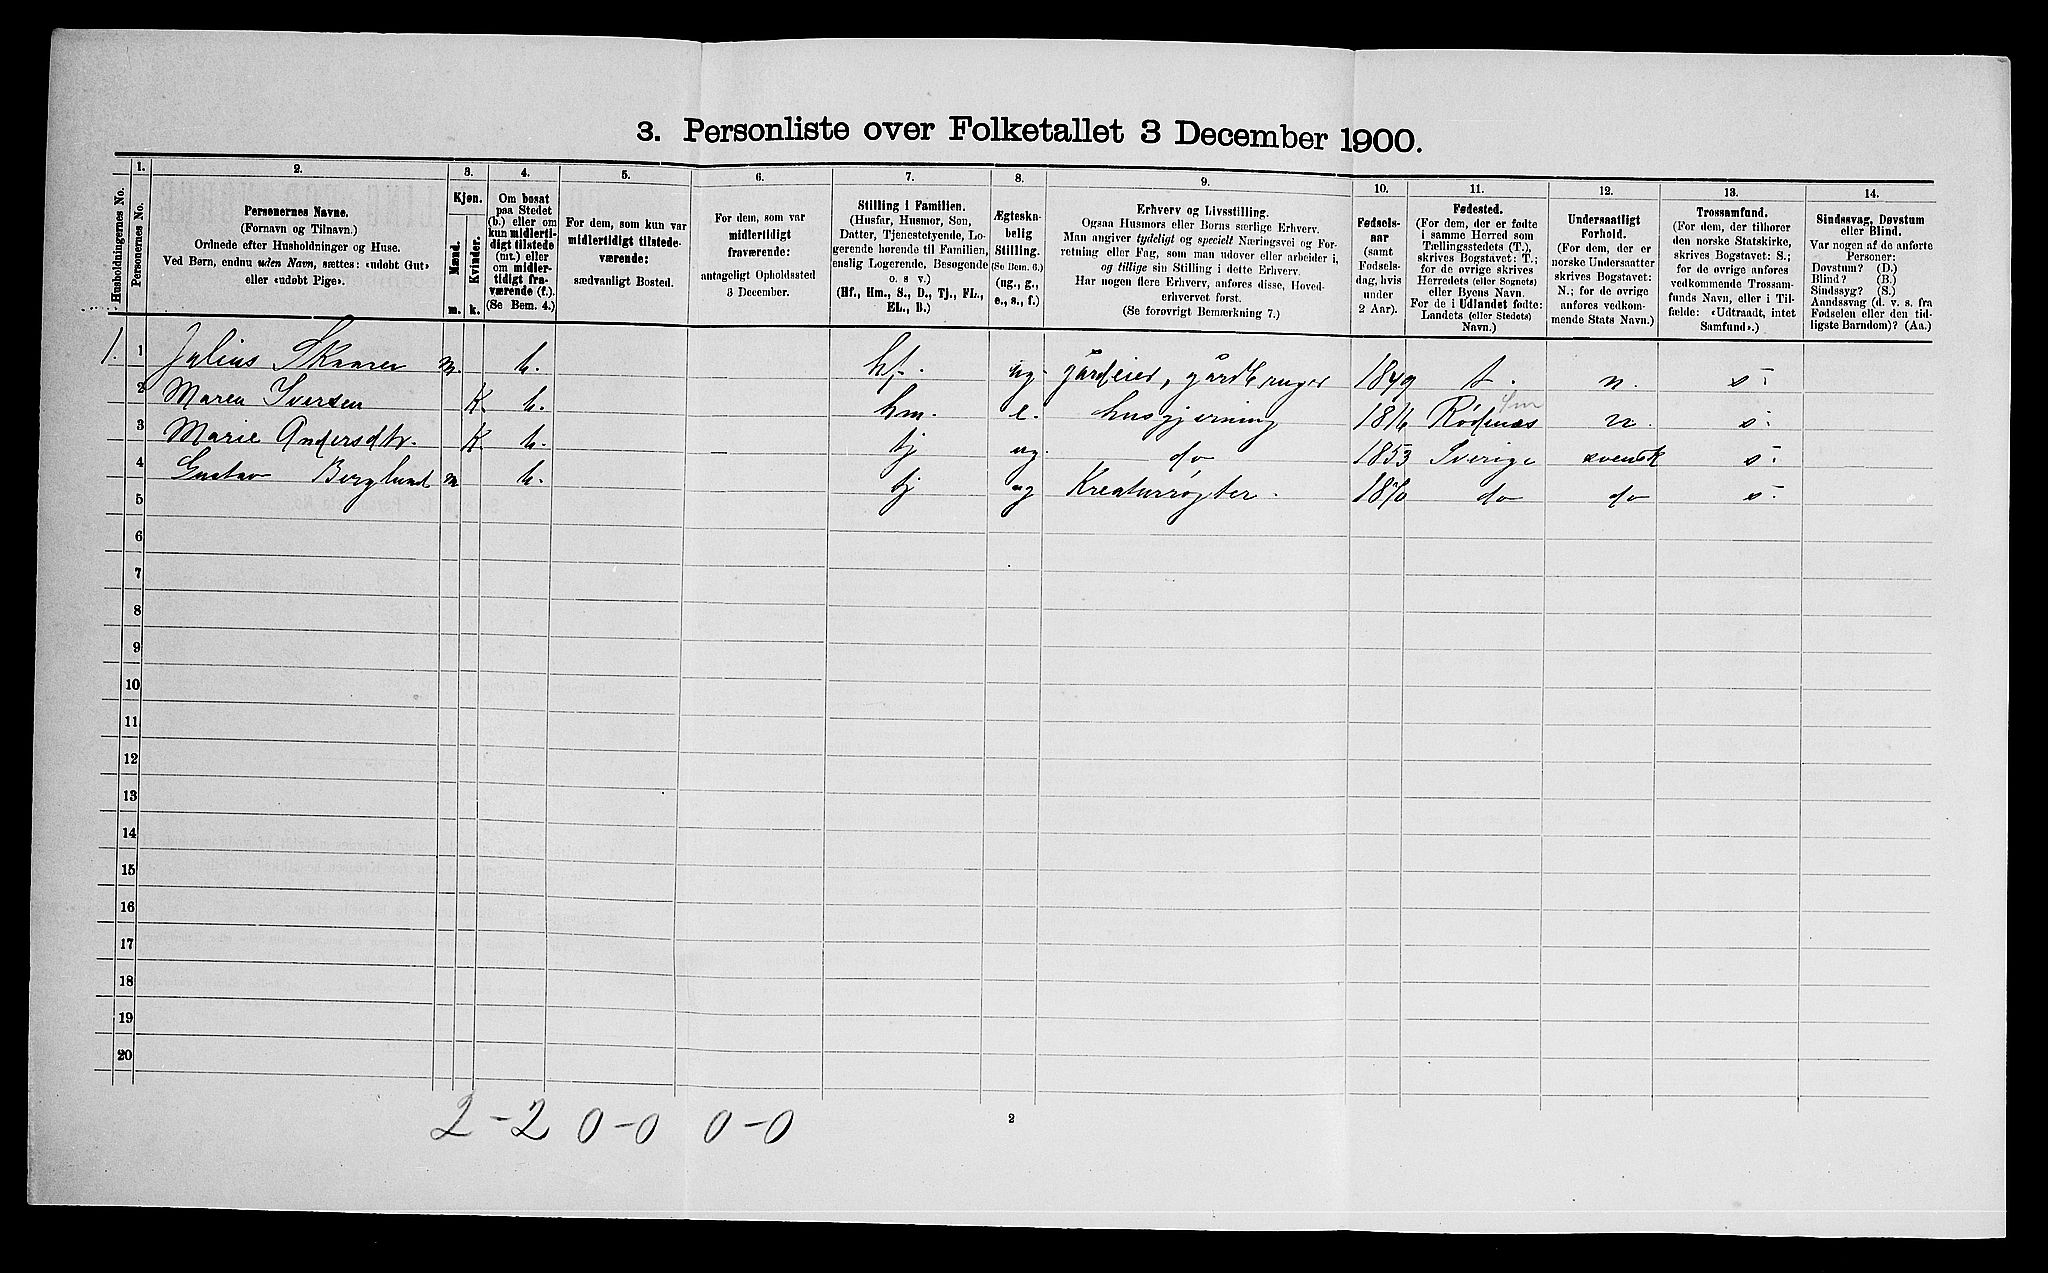 3. Personliste over Folketallet 3 December 1900.
Husholdningernes No.
1. Personernes No.
2. Personernes Navne.
(Fornavn og Tilnavn.)
Ordnede efter Husholdninger og Huse.
Ved Børn, endnu uden Navn, sættes: «udøbt Gut»
eller «udøbt Pige».
3. Kjøn.
Mænd. m.
Kvinder. k.
4. Om bosat
paa Stedet
(b.) eller om
kun midlerti-
digt tilstede
(mt.) eller
om midler-
tidigt fra-
værende (f.).
(Se Bem. 4.)
5. For dem, som kun var
midlertidigt tilstede-
værende:
sædvanligt Bosted.
6. For dem, som var
midlertidigt
fraværende:
antageligt Opholdssted
3 December.
7. Stilling i Familien.
(Husfar, Husmor, Søn,
Datter, Tjenestetyende, Lo-
gerende hørende til Familien,
enslig Logerende, Besøgende
o. s v.)
(Hf., Hm., S., D., Tj., FL.,
EL., B.)
8. Ægteska-
belig
Stilling.
(Se Bem. 6.)
(ug., g.,
e., s., f.)
9. Erhverv og Livsstilling.
Ogsaa Husmors eller Børns særlige Erhverv.
Man angiver tydeligt og specielt Næringsvei og For-
retning eller Fag, som man udøver eller arbeider i,
og tillige sin Stilling i dette Erhverv.
Har nogen flere Erhverv, anføres disse, Hoved-
erhvervet først.
(Se forøvrigt Bemærkning 7.)
10. Fødsels-
aar
(samt
Fødsels-
dag, hvis
under
2 Aar).
11. Fødested.
(For dem, der er fødte
i samme Herred som
Tællingsstedets (T.),
skrives Bogstavet: T.;
for de øvrige skrives
Herredets (eller Sognets)
eller Byens Navn.
For de i Udlandet fødte:
Landets (eller Stedets)
Navn.)
12. Undersaatligt
Forhold.
(For dem, der er
norske Undersaatter
skrives Bogstavet:
N.; for de øvrige
anføres vedkom-
mende Stats Navn.)
13. Trossamfund.
(For dem, der tilhører
den norske Statskirke,
skrives Bogstavet: S.;
for de øvrige anføres
vedkommende Trossam-
funds Navn, eller i Til-
fælde: «Udtraadt, intet
Samfund».)
14. Sindssvag, Døvstum
eller Blind.
Var nogen af de anførte
Personer:
Døvstum? (D.)
Blind? (B.)
Sindssyg? (S.)
Aandssvag (d. v. s. fra
Fødselen eller den tid-
ligste Barndom)? (Aa.)
1. 1 Julius Skaarer m. b. hf. ug. gårdeier, gårdbruger 1849 t. n. s.
2 Maren Iversen K. b. hm. e. husgjerning 1816 Rødenæs n. s.
3 Marie Andersdtr. K. b. tj ug. do 1853 Sverige svensk s.
4 Gustav Berglund m b. tj ug Kreaturrøgter. 1870 do do s.
5
6
7
8
9
10
11
12
13
14
15
16
17
18
19
20
2-2 0-0 0-0
2